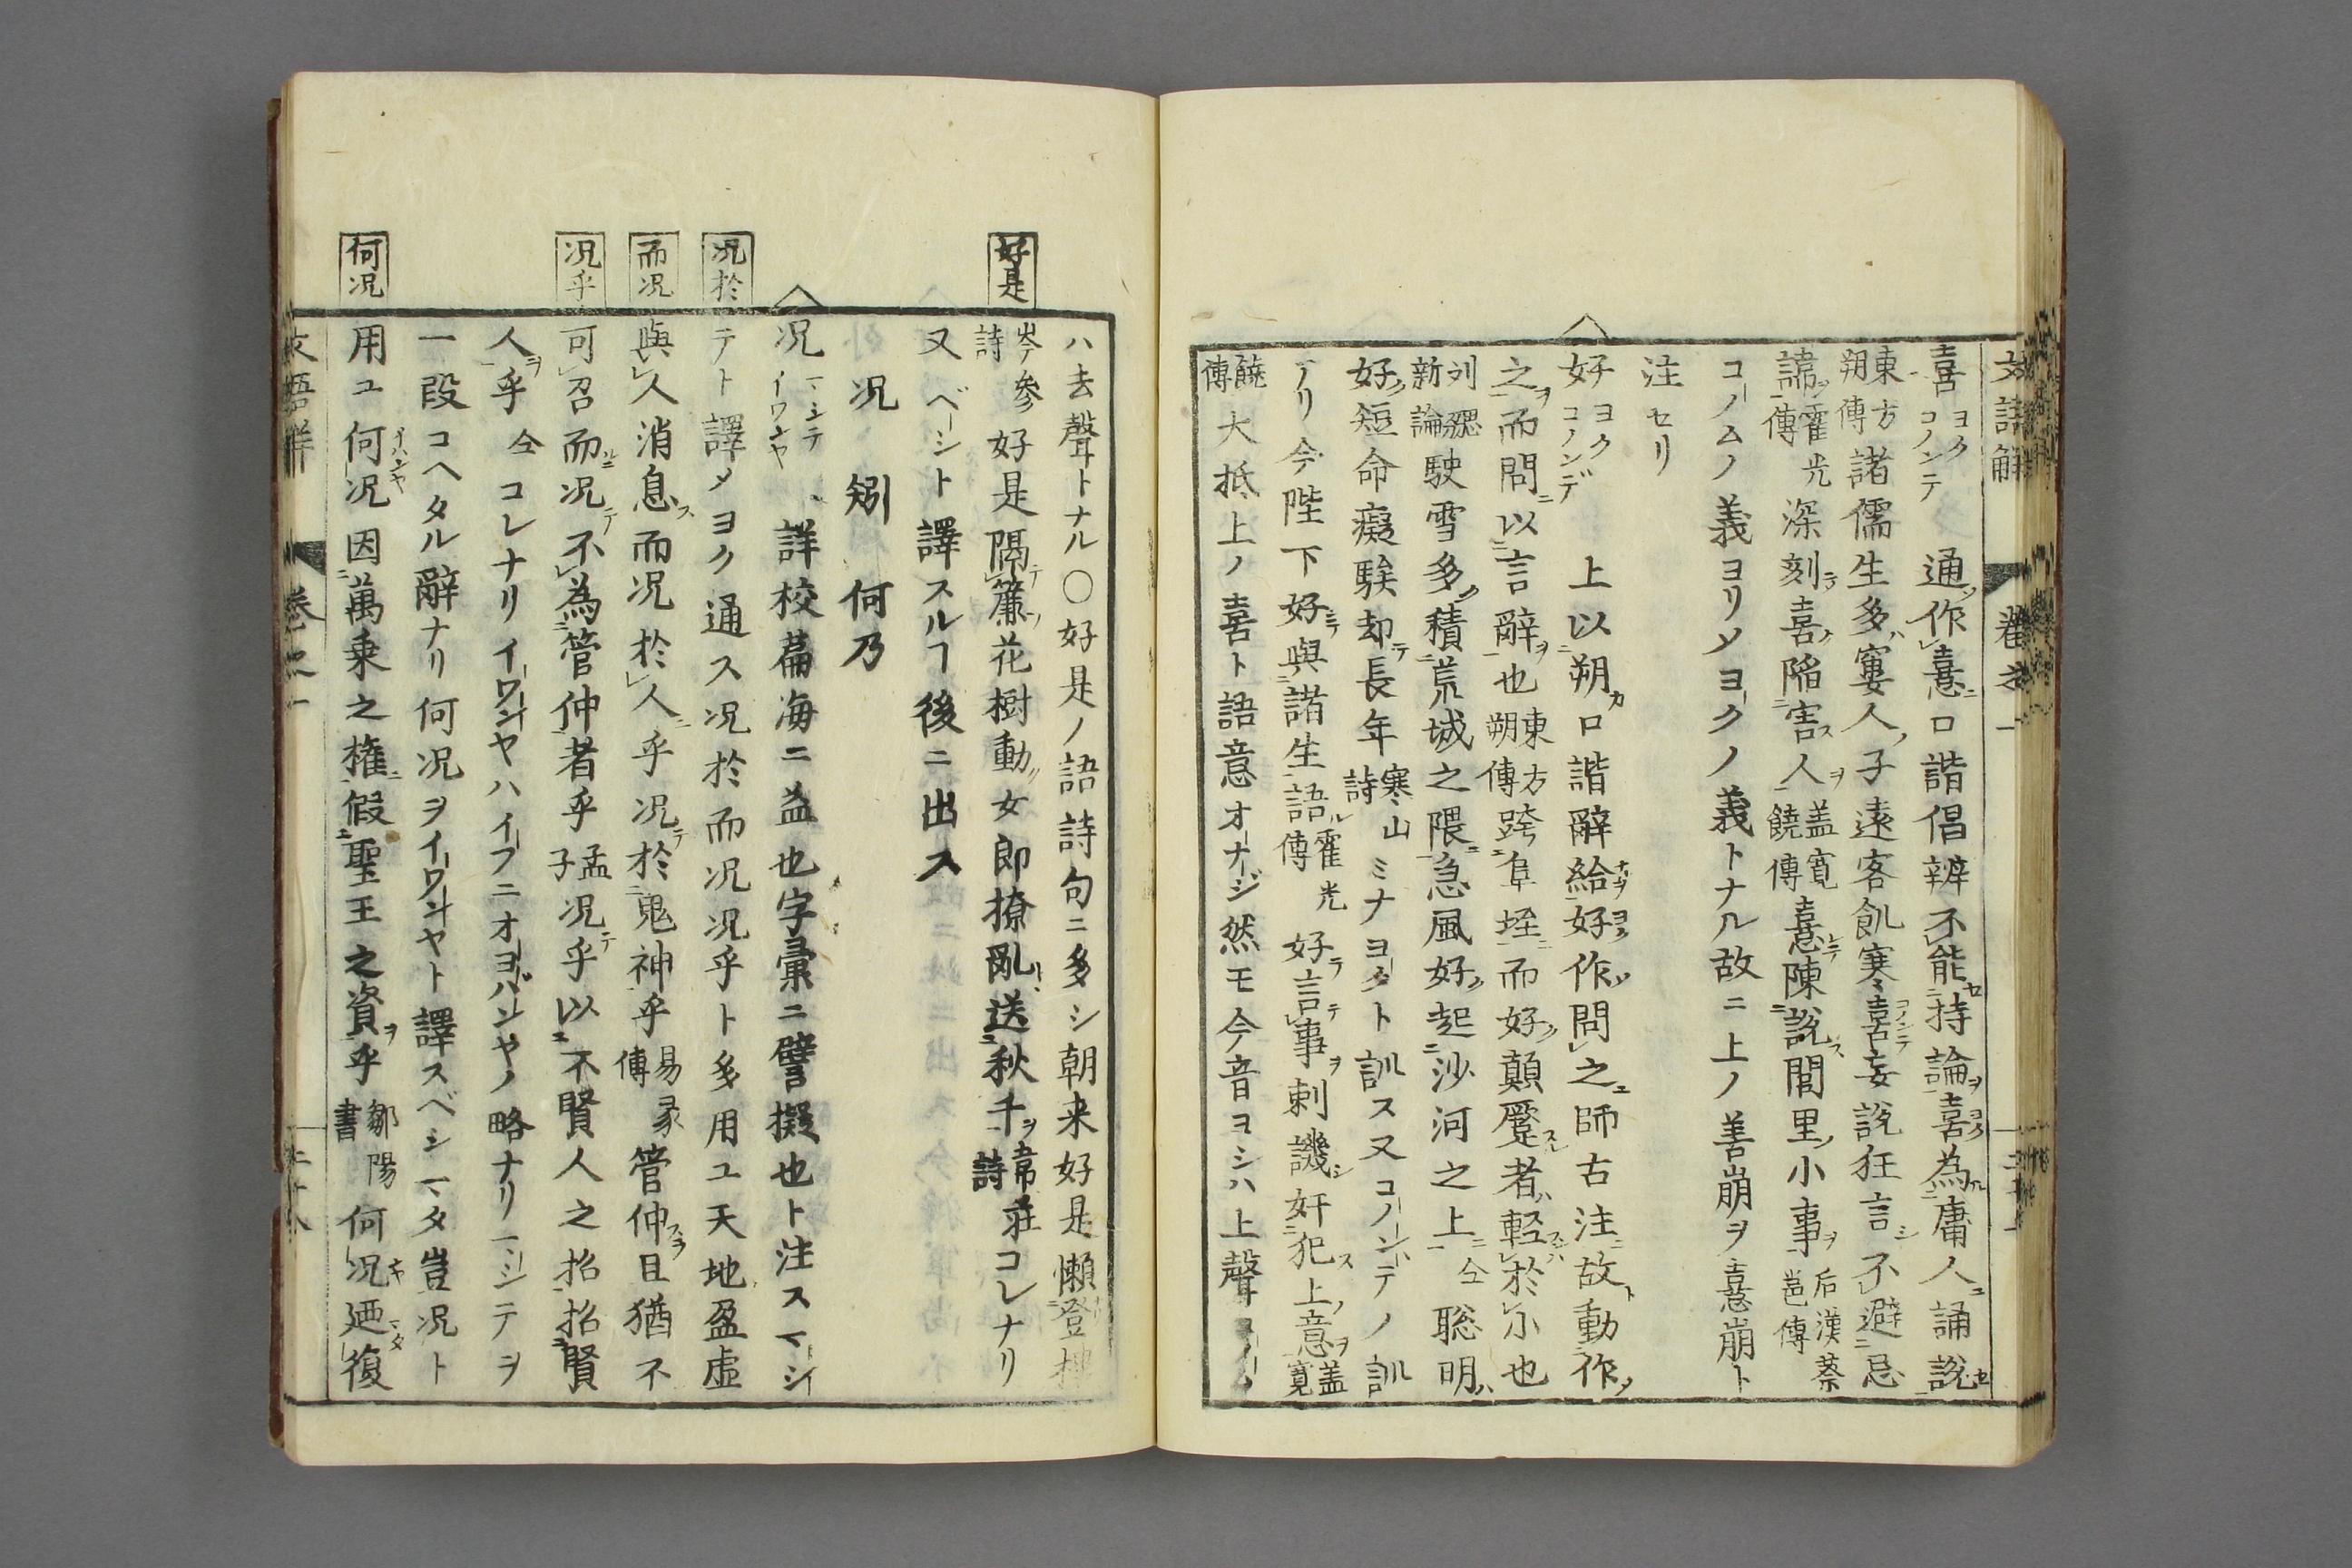 文語解 卷之一
喜 ヨク コノンテ 通作憙口諧倡辨不能持論喜為庸人誦說
東方朔傳 諸儒生多窶人子遠客飢寒喜妄說狂言不避忌
諱 霍光傳 深刻喜陷害人 盖寬饒傳 憙陳說閭里小事 后漢蔡邕傳
コノムノ義ヨリメヨクノ義トナル故ニ上ノ善崩ヲ憙崩ト
注セリ
好 ヨク コノンデ 上以朔口諧辭給好作問之師古注故動作
之而問以言辭也 東方朔傳 跨阜垤而好顛蹷者輕於小也
刘勰新論 駛雪多積荒城之隈急風好起沙河之上 仝 聡明
好短命癡騃却長年 寒山詩 ミナヨクト訓ス又コノンデノ訓
アリ今陛下好與諸生語 霍光傳 好言事刺譏奸犯上意 盖寬
饒傳 大抵上ノ喜ト語意オナジ然モ今音ヨシハ上聲
好是
ハ去聲トナル〇好是ノ語詩句ニ多シ朝来好是懶登
岑参詩 好是隔簾花樹動女郎撩亂送秋千 韋莊詩 コレナリ
又ベシト譯スルヿ後ニ出ス
况 矧 何乃
况 マシテ イワンヤ 詳校萹海ニ益也字彙ニ譬擬也ト注スマシ
况於
テト譯メヨク通ス况於而况况乎ト多用ユ天地盈虚
而况
與人消息而况於人乎况於鬼神乎 易彖傳 管仲且猶不
况乎
可召而况不為管仲者乎 孟子 况乎以不賢人之招招賢
人乎 仝 コレナリイワンヤハイフニオヨバンヤノ略ナリマシテヲ
一段コヘタル辭ナリ何况ヲイワンヤト譯スベシマタ豈况ト
何况
用ユ何况因萬乗之権假聖王之資乎 鄒陽書 何况廼復
文語解 卷之一 二十八